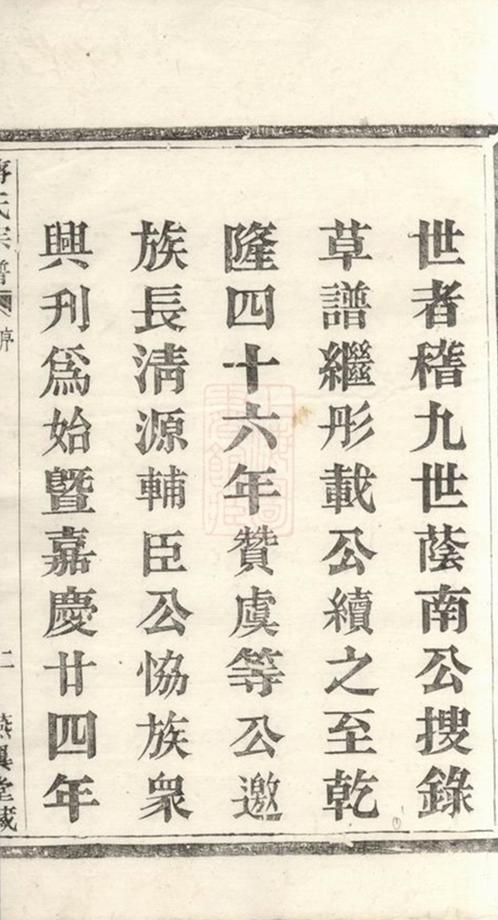 世者稽九世蔭南公搜錄
草譜繼彤載公續之至乾
隆四十六年贊虞等公邀
族長清源輔臣公恊族衆
興刋爲始曁嘉慶廿四年
氏宗譜
二
堂藏